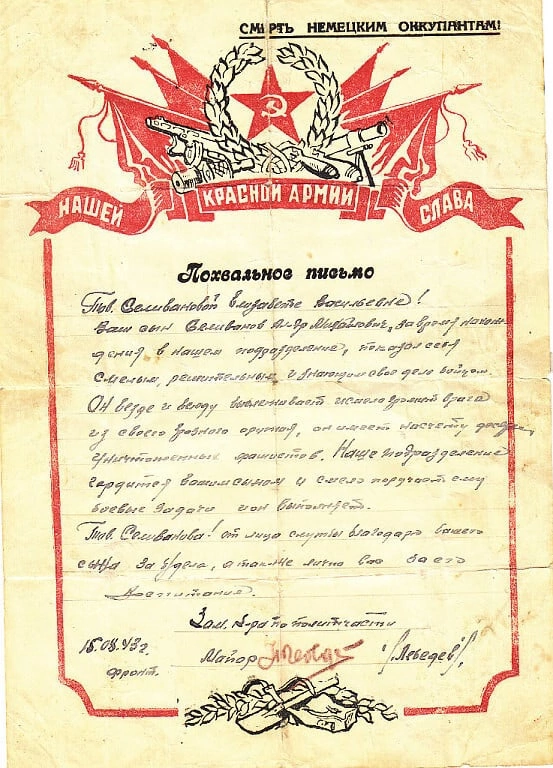 СМЕРТЬ НЕМЕЦКИМ ОККУПАНТАМ!
НАШЕЙ КРАСНОЙ АРМИИ СЛАВА
Похвальное письмо
Тов. Селивановой Елизавете Васильевне!
Ваш сын Селиванов Михайлович, за время нахож-
дения в нашем подразделение, показал себя
смелым, решительным и знающим свое дело бойцом.
Он везде и всюду выслеживает и смело громит врага
из своего грозного оружия, он имеет на счету
уничтоженных фашистов. Наше подразделение
гордится вашим сыном и смело поручает ему
боевые задачи и он выполняет.
Тов. Селиванова! от лица службы благодарю вашего
сына за б/дела, а также лично вас за его
воспитание.
Зам. к-ра по политчасти
15.08.43г. Майор /Лебедев/
фронт.